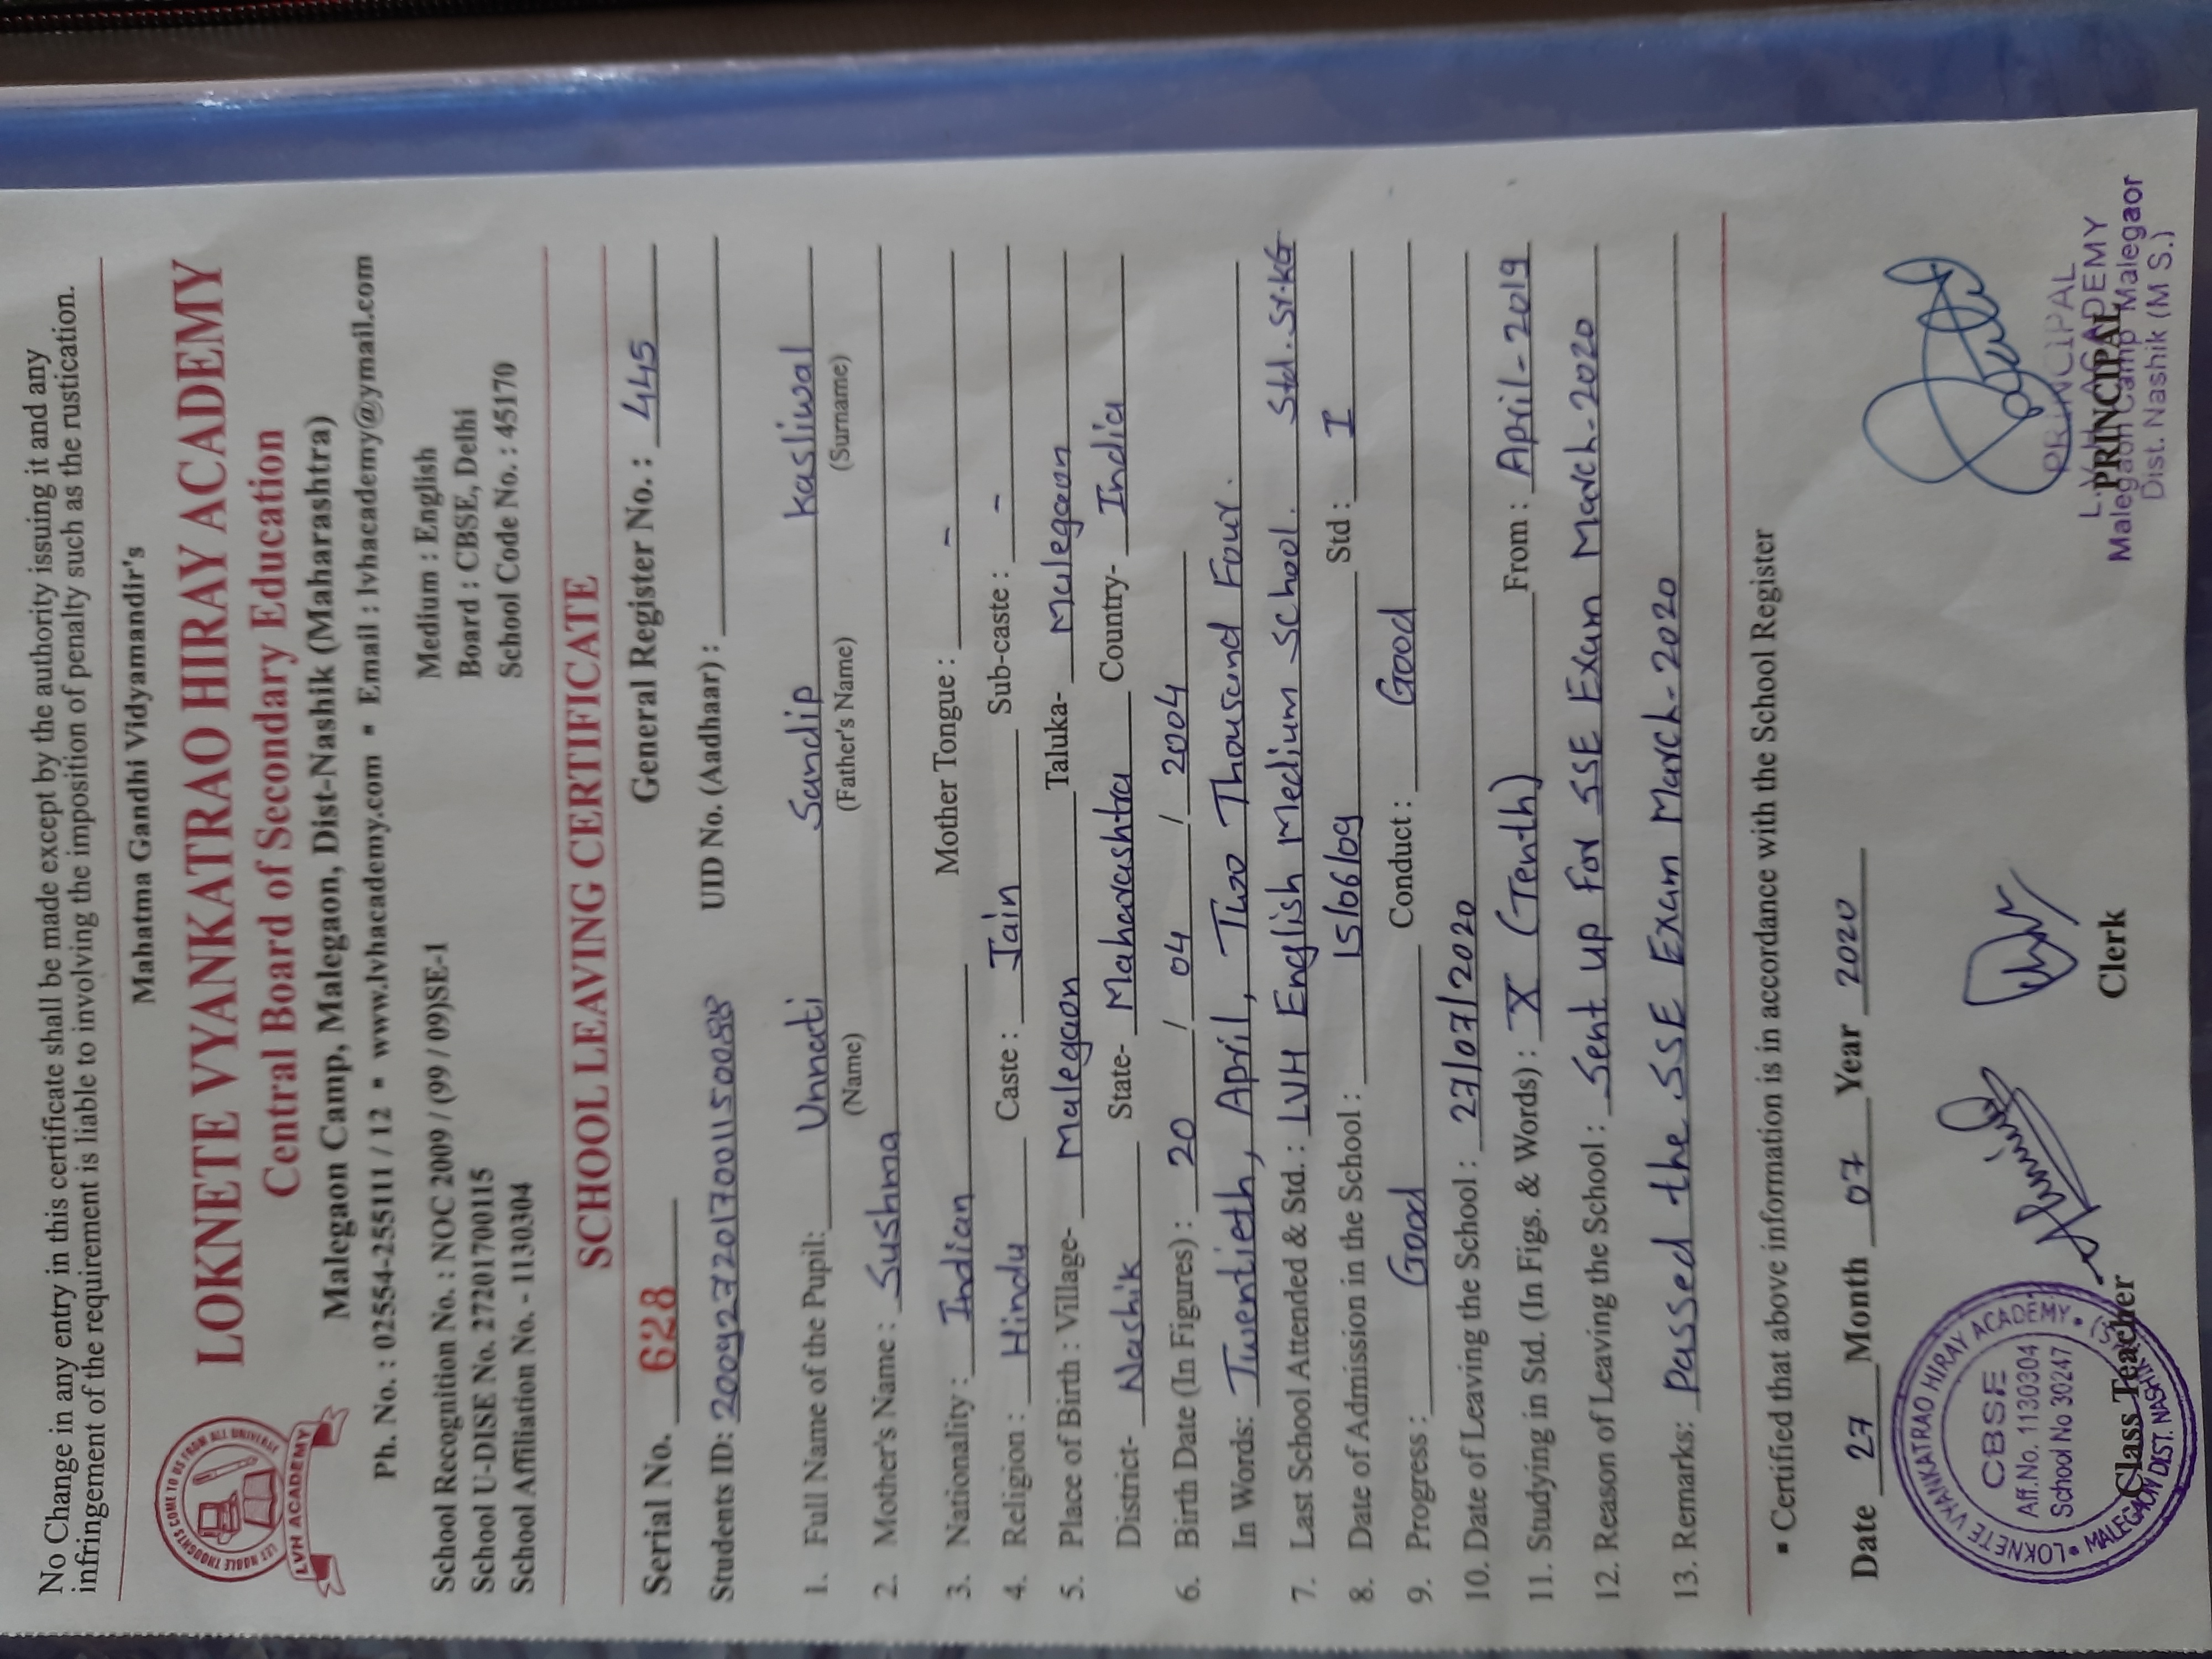 No Change in any entry in this certificate shall be made except by the authority issuing it and any
infringement of the requirement is liable to involving the imposition of penalty such as the rustication.
Mahatma Gandhi Vidyamandir's
LOKNETE VYANKATRAO HIRAY ACADEMY
Central Board of Secondary Education
Malegaon Camp, Malegaon, Dist-Nashik (Maharashtra)
Ph. No. : 02554-255111 / 12 ▪ www.lvhacademy.com ▪ Email : lvhacademy@ymail.com
LET NOBLE THOUGHTS COME TO US FROM ALL UNIVERSE
LVH ACADEMY
School Recognition No. : NOC 2009 / (99 / 09)SE-1 Medium : English
School U-DISE No. 27201700115 Board : CBSE, Delhi
School Affiliation No. - 1130304 School Code No. : 45170
SCHOOL LEAVING CERTIFICATE
Serial No. 628 General Register No. : 445
Students ID: 2009272017001150058 UID No. (Aadhaar) :
1. Full Name of the Pupil: Unnati Sandip Kasliwal
(Name) (Father's Name) (Surname)
2. Mother's Name : Sushma
3. Nationality : Indian Mother Tongue : -
4. Religion : Hindu Caste : Jain Sub-caste : -
5. Place of Birth : Village- Malegaon Taluka- Malegaon
District- Nashik State- Maharashtra Country- India
6. Birth Date (In Figures) : 20 / 04 / 2004
In Words: Twentieth, April, Two Thousand Four.
7. Last School Attended & Std. : LVH English Medium School. Std. Sr.KG
8. Date of Admission in the School : 15/06/09 Std : I
9. Progress : Good Conduct : Good
10. Date of Leaving the School : 27/07/2020
11. Studying in Std. (In Figs. & Words) : X (Tenth) From : April-2019
12. Reason of Leaving the School : Sent up For SSE Exam March-2020
13. Remarks: Passed the SSE Exam March-2020
▪ Certified that above information is in accordance with the School Register
Date 27 Month 07 Year 2020
LOKNETE VYANKATRAO HIRAY ACADEMY
CBSE
Aff.No. 1130304
School No 30247
MALEGAON DIST. NASHIK
Class Teacher Clerk PRINCIPAL
PRINCIPAL
L.V.H. ACADEMY
Malegaon Camp Malegaon
Dist. Nashik (M S.)